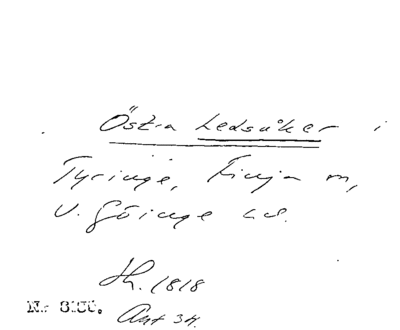 Östra Ledsåker i
Tyringe, Finja sn,
V. Göinge hd.
Sk. 1818
Nr
Ant 34.